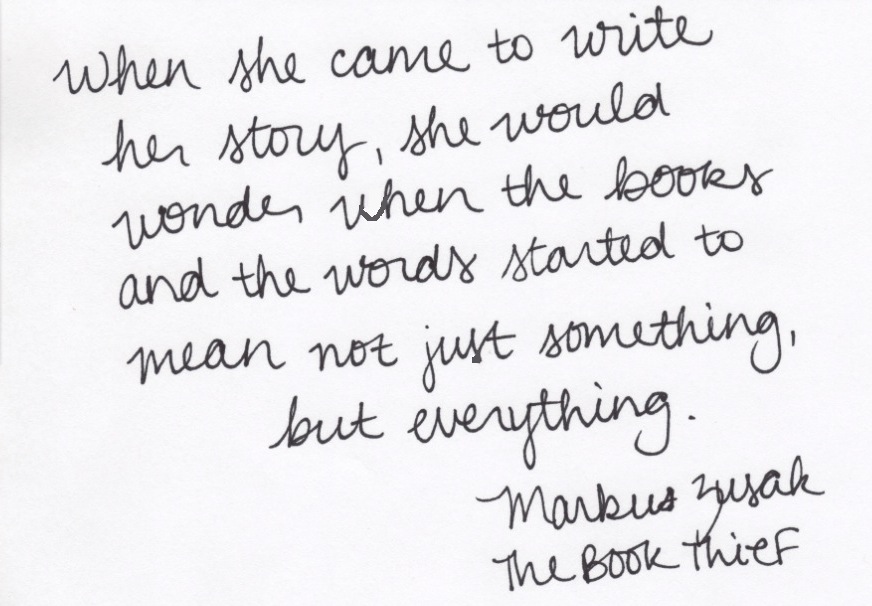 When she came to write
her story, she would
wonder when the books
and the words started to
mean not just something,
but everything.
Markus Zusak
The Book Thief